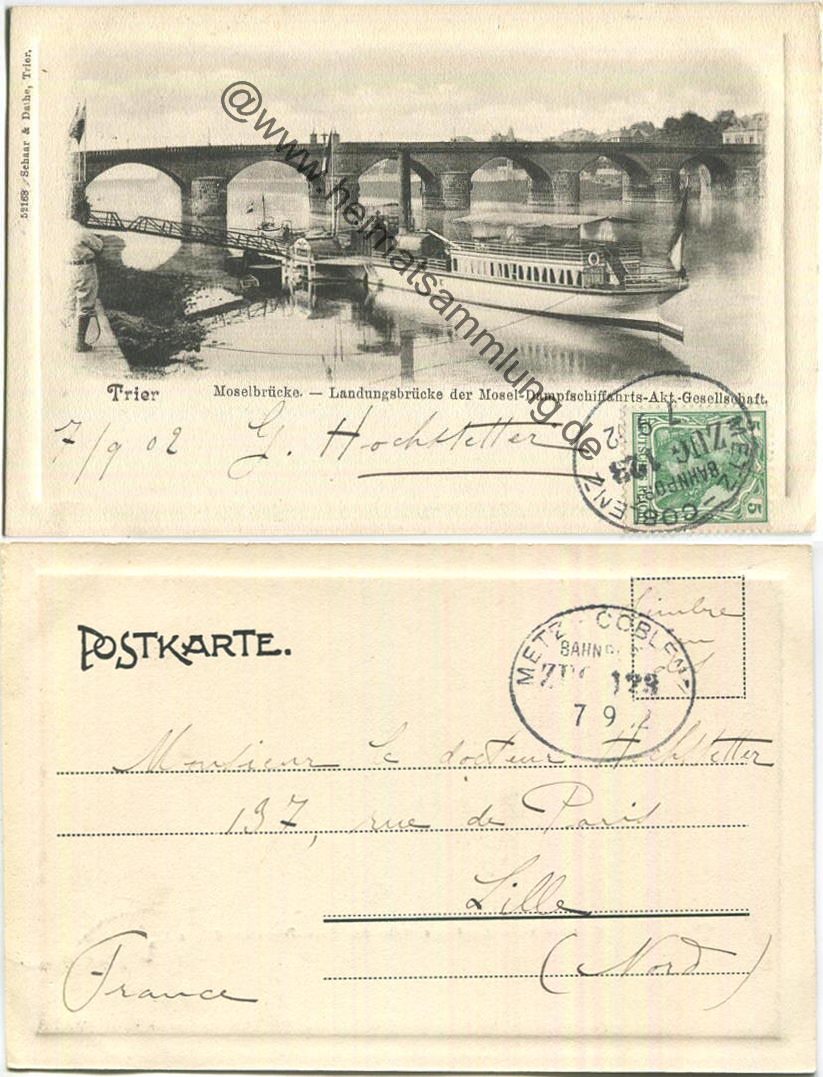 52168 Schaar & Dathe, Trier.
@www.heimatsammlung.de
Trier
Moselbrücke. — Landungsbrücke der Mosel-Dampfschiffahrts-Akt.-Gesellschaft.
7/9 02 G. Hochstetter
METZ - COBLENZ
BAHNPOST
ZUG 123
7 9 2
DEUTSCHES REICH
5 5
POSTKARTE.
Timbre
METZ - COBLENZ
BAHNP
ZUG 123
7 9 2
Monsieur le docteur Hochstetter
137, rue de Paris
Lille
(Nord)
France